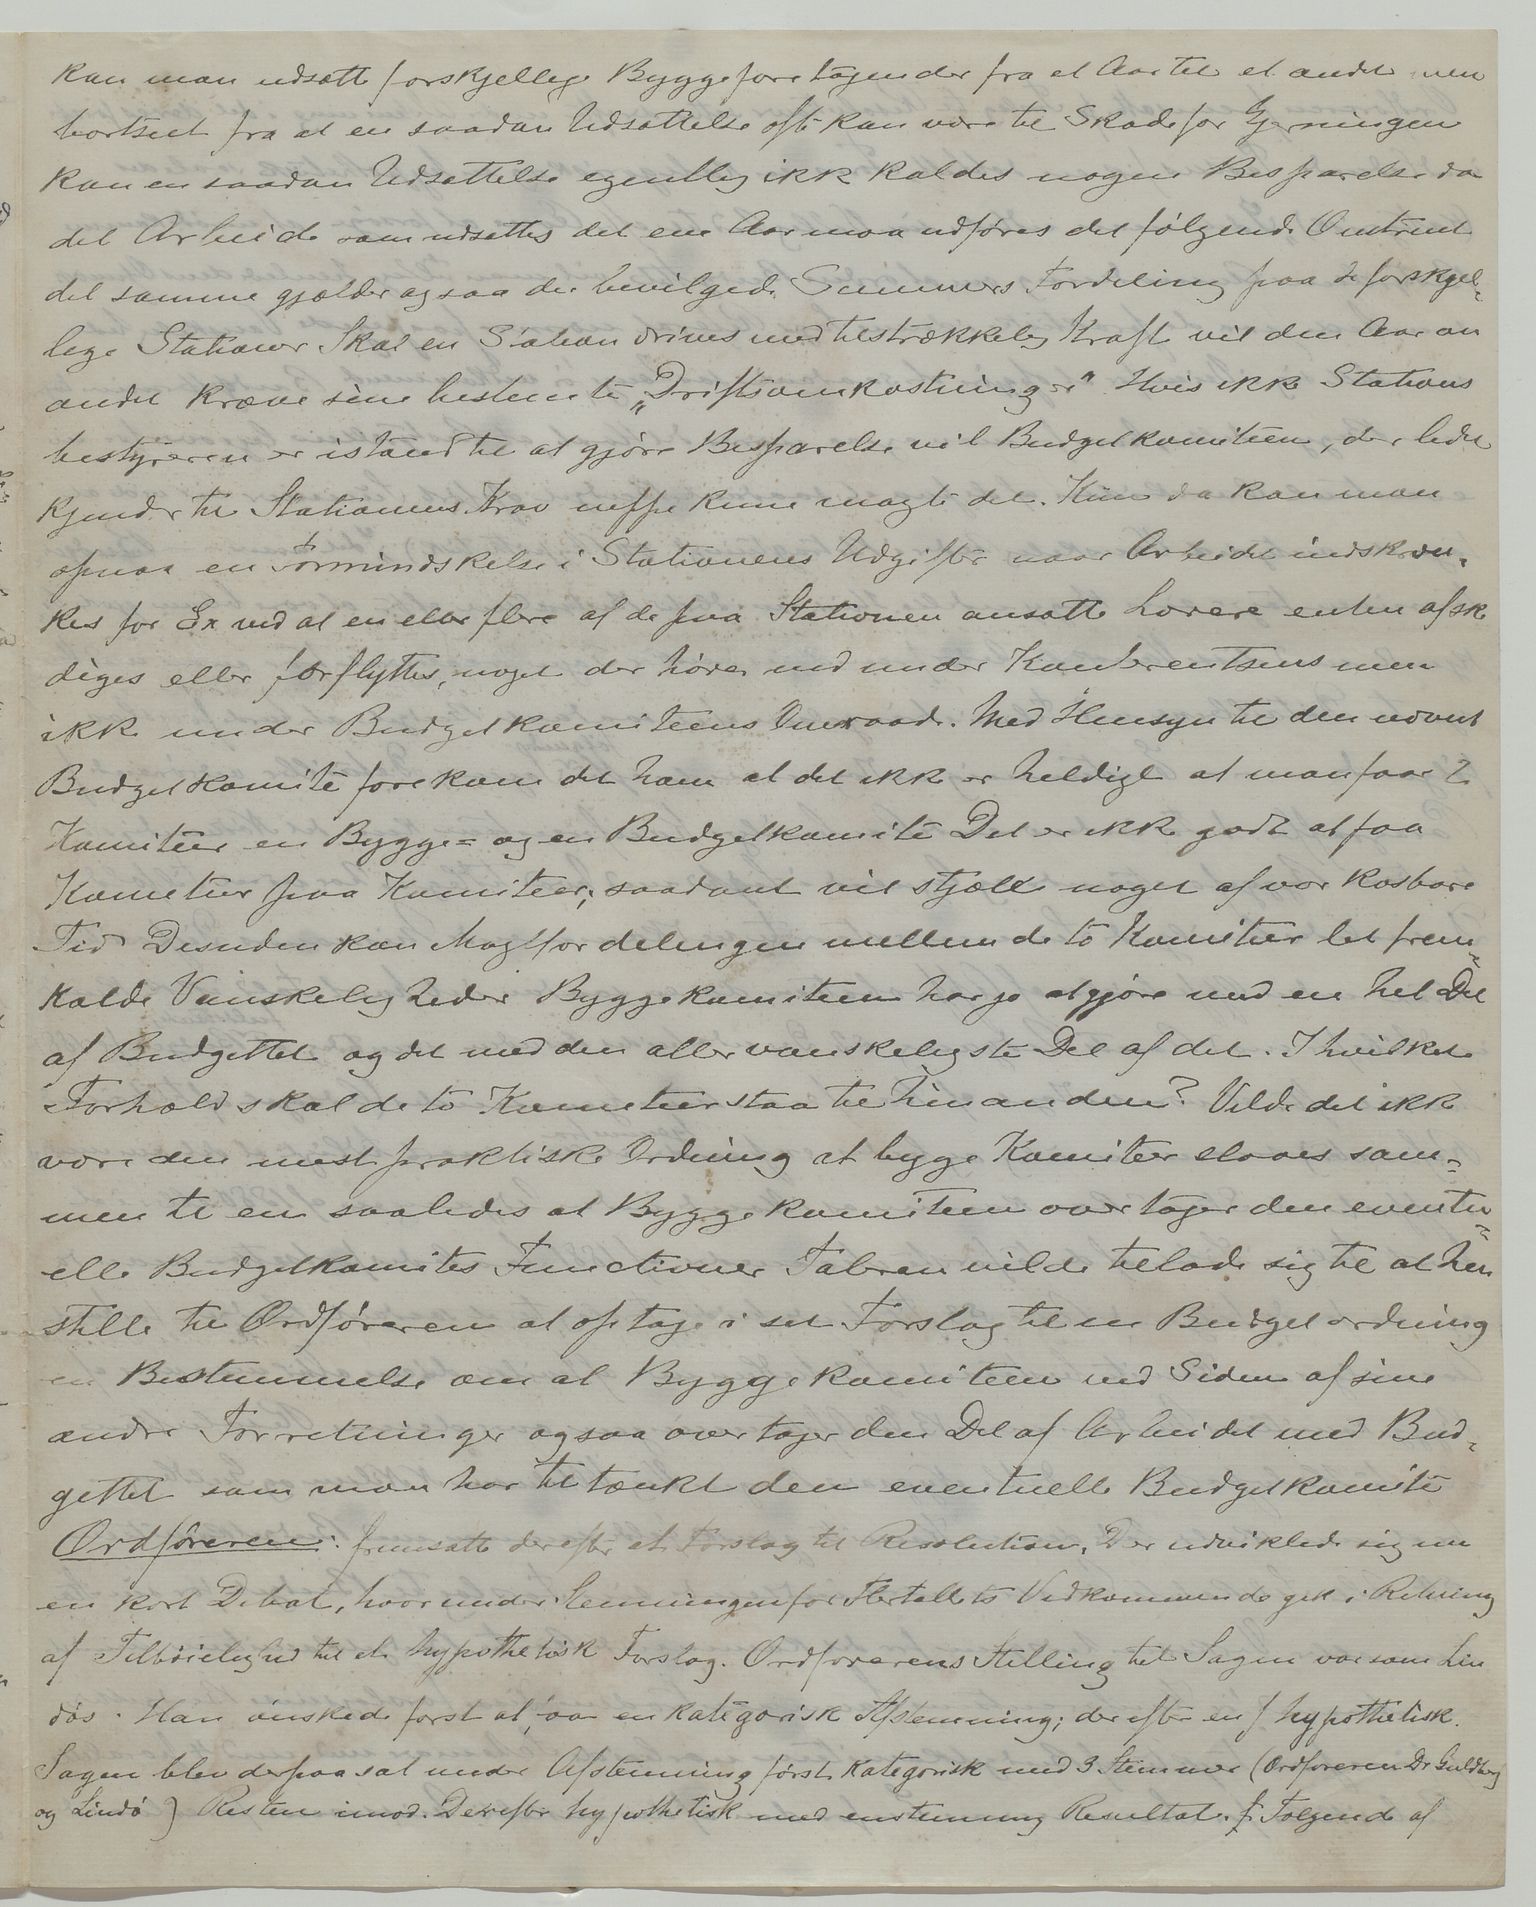 kan man udsætte forskjellige Byggeforetagender fra et Aar til et andet men
bortseet fra at en saadan Udsættelse ofte kan være til Skade for Gjerningen
kan en saadan Udsættelse egentlig ikke kaldes nogen Besparelse da
det Arbeide som udsættes det ene Aar maa udføres det følgende. Omtrent
det samme gjælder ogsaa den bevilgede Summers Fordeling paa de forskjel-
lige Stationer Skal en Station drives med tilstrækkelig Kraft vil den Aar om
andet kræve sine bestemte "Driftsomkostninger" Hvis ikke Stations
bestyreren er istand til at gjøre Besparelse vil Budgetkomiteen, der lidet
kjender til Stationens Krav neppe kunne magte det. Kun da kan man
opnaa en Formindskelse i Stationens Udgifter naar Arbeidet indskræn-
kes for Ex ved at en eller flere af de paa Stationen ansatte Lærere enten afske
diges eller forflyttes, noget der hører ind under Konferentsens men
ikke under Budgetkomiteens Omraade. Med Hensyn til den nævnte
Budgetkomite forekom det ham at det ikke er heldigt at man faar 2
Komiteer en Bygge= og en Budgetkomite Det er ikke godt at faa
Kometeer paa Komiteer; saadant vil stjæle noget af vor kosbare
Tid Desuden kan Magtfordelingen mellem de to Komiteer let frem=
kalde Vanskeligheder Byggekomiteen har jo at gjøre med en hel Del
af Budgettet og det med den aller vanskeligste Del af det. I hvilket
Forhold skal de to Kometeer staa til hinanden? Vilde det ikke
være den mest praktiske Ordning at begge Komiteer slaaes sam=
men til en saaledes at Byggekomiteen overtager den eventu=
elle Budgetkomites Functioner Taleren vilde tillade sig til at hen
stille til Ordføreren at optage i sit Forslag til en Budgetordning
en Bestemmelse om at Byggekomiteen ved Siden af sine
andre Forretninger ogsaa overtager den Del af Arbeidet med Bud-
gettet som man har tiltænkt den eventuelle Budgetkomite
Ordføreren: fremsatte derefter et Forslag til Resolution. Der udviklede sig nu
en kort Debat, hvorunder Stemningen for Flertallets Vedkommende gik i Retning
af Tilbøielighed til et hypothetisk Forslag. Ordførerens Stilling til Sagen var som Lin
døs. Han ønskede først at faa en kategorisk Afstemning; derefter en hypothetisk.
Sagen blev derpaa sat under Afstemning først kategorisk med 3 Stemmer (Ordføreren Dr Guldberg
og Lindø) Resten imod. Derefter hypothetisk med enstemmig Resultat. Følgende af